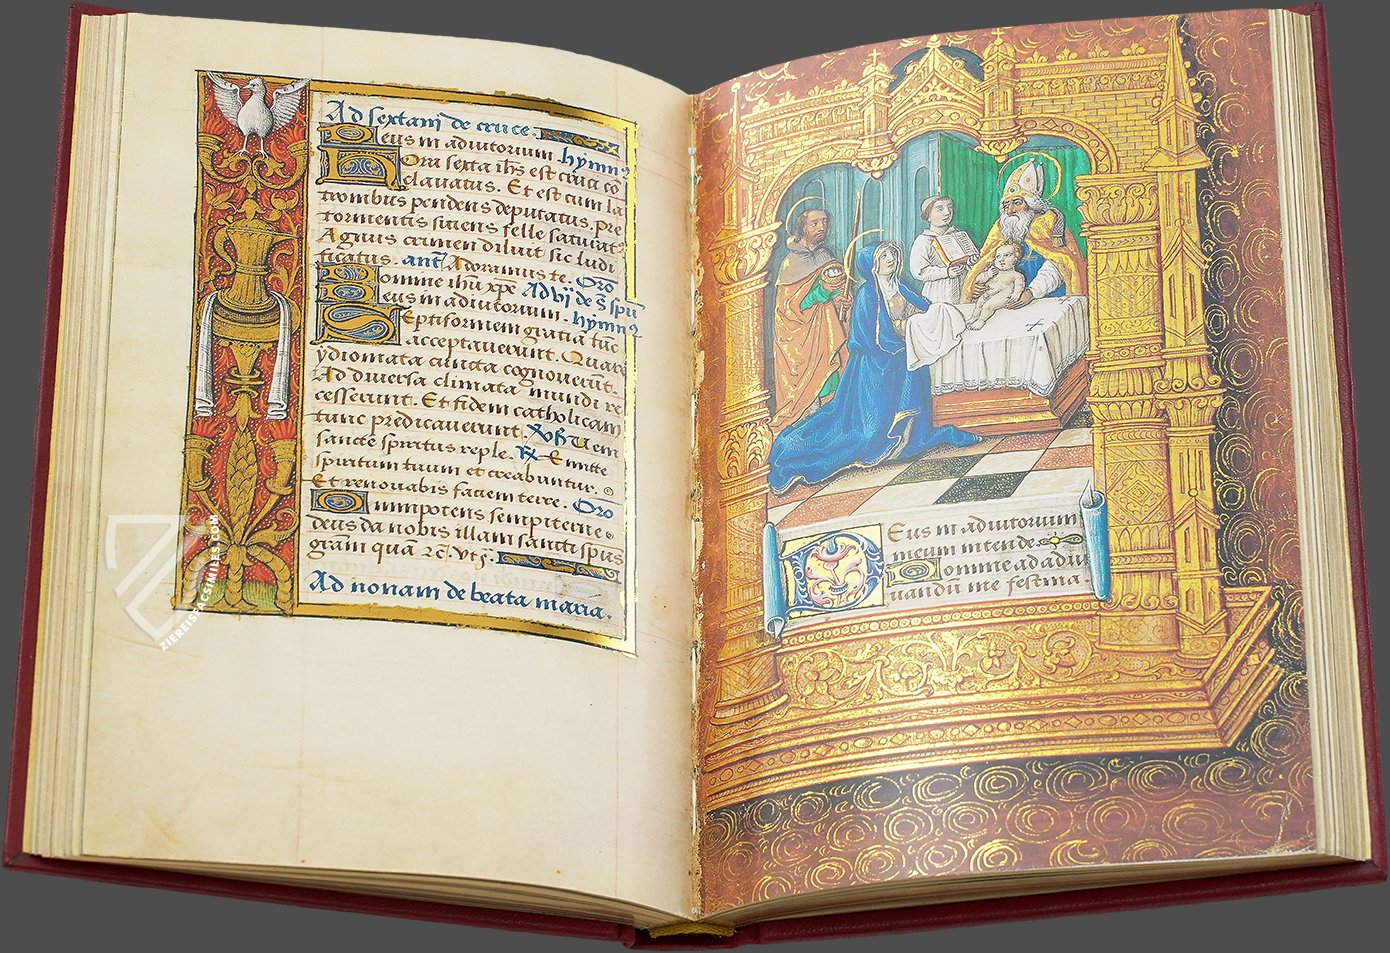 Ad sextam de cruce.
Deus in adiutorium. hymnus
Hora sexta ihs est cruci co
clavatus. Et est cum la
tronibus pendens deputatus. Pre
tormentis sitiens felle saturat9
Agnus crimen diluit sic ludi
ficatus. ant Adoramus te. Oro
Domine ihu xpe Ad vi de s spu
Deus in adiutorium. hymn9
Septiformem gratiā tūc
acceptaverunt. Quare
ydiomata cuncta cognoverūt.
Ad diversa climata mundi re
cesserunt. Et fidem catholicam
tunc predicaverunt. Vem
sancte spiritus reple. Emitte
spiritum tuum et creabuntur.
Et renovabis faciem terre. Oro
Omnipotens sempiterne
deus da nobis illam sancti spūs
grām quā
Ad nonam de beata maria.
Deus in adiutorium
meum intende.
Domine ad adiu
vandū me festina.
ZIEREIS FACSIMILES.COM